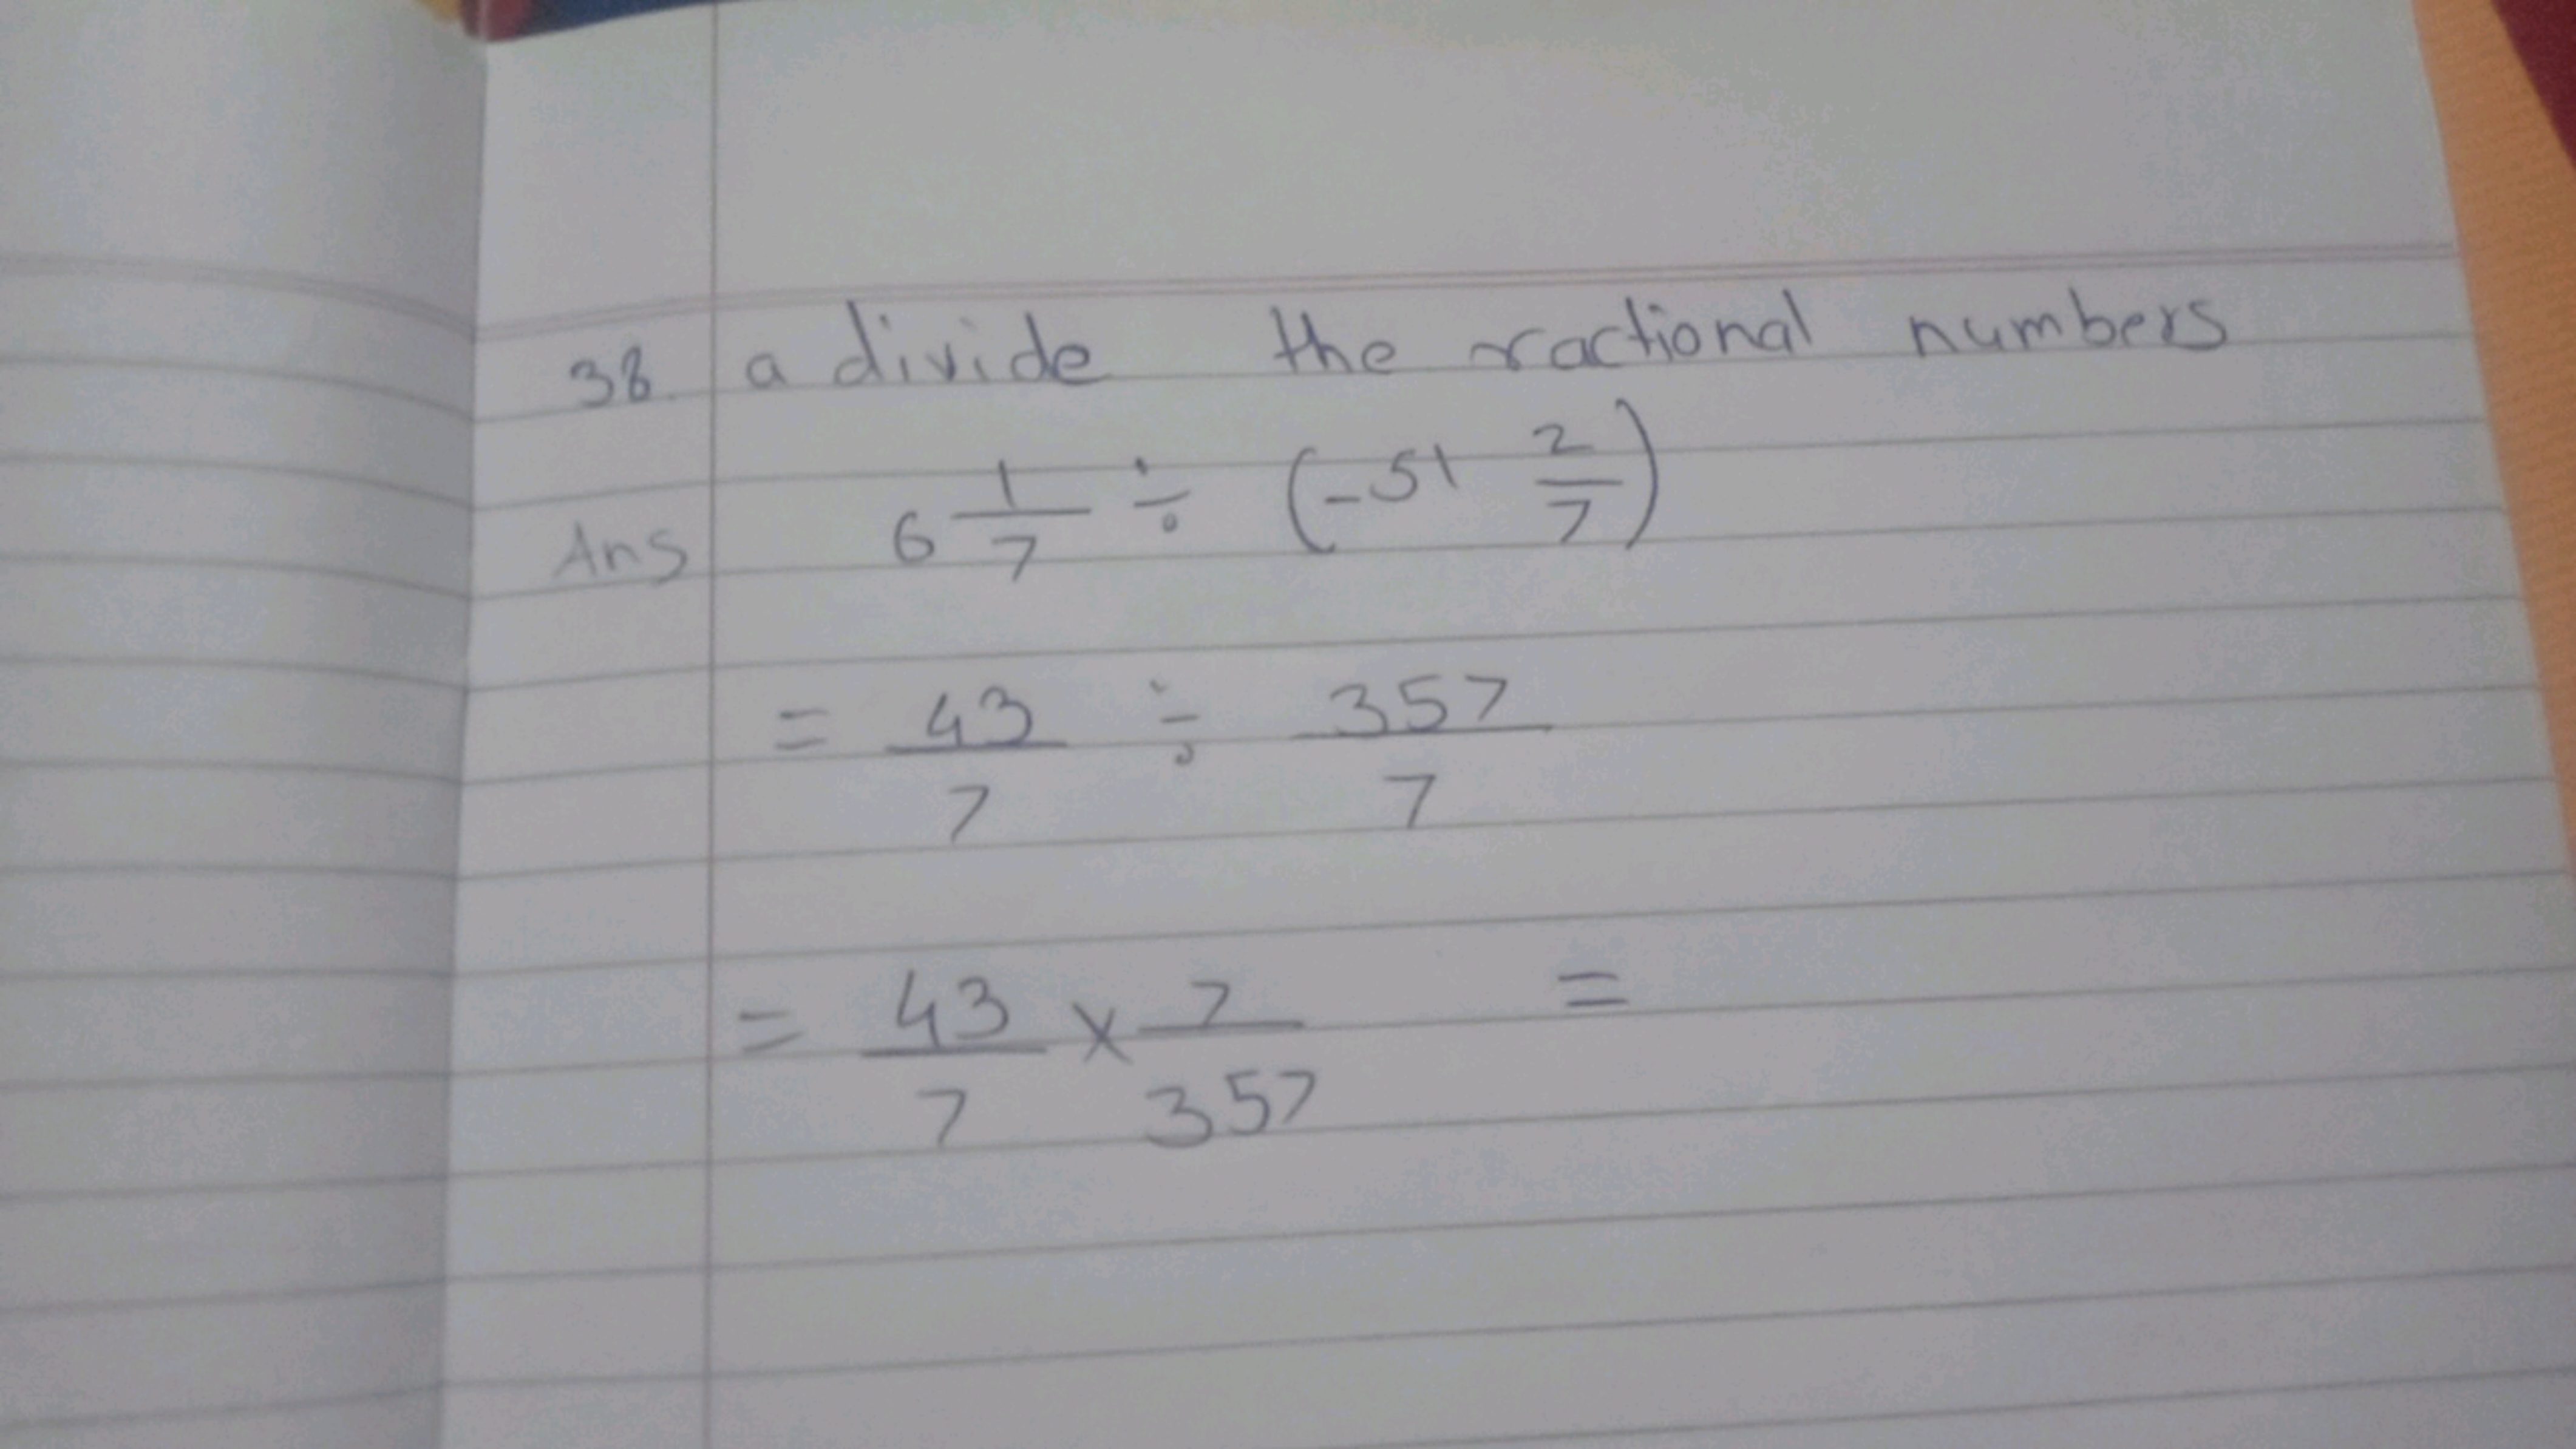 38. a divide the ractional numbers
Ans 6 1/7 ÷ (-51 2/7)
= 43/7 ÷ 357/7
= 43/7 x 7/357 =